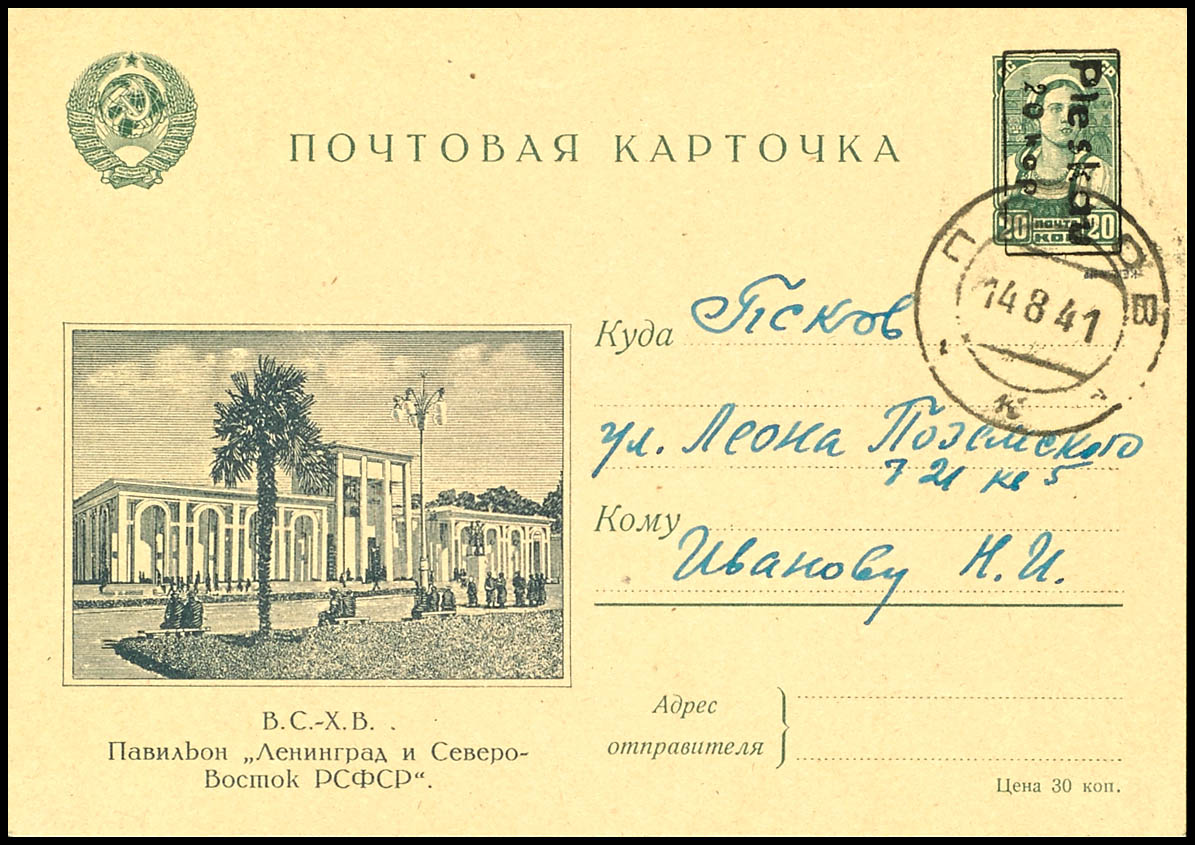 ПОЧТОВАЯ КАРТОЧКА
СССР
20 ПОЧТА 20
КОП
Pleskau
20 коп
ПСКОВ
14 8 41
Куда Псков
ул. Леона Поземского
7 21 кв 5
Кому
Иванову Н.И.
В.С.-Х.В.
Павильон „Ленинград и Северо-
Восток РСФСР“.
Адрес
отправителя
Цена 30 коп.